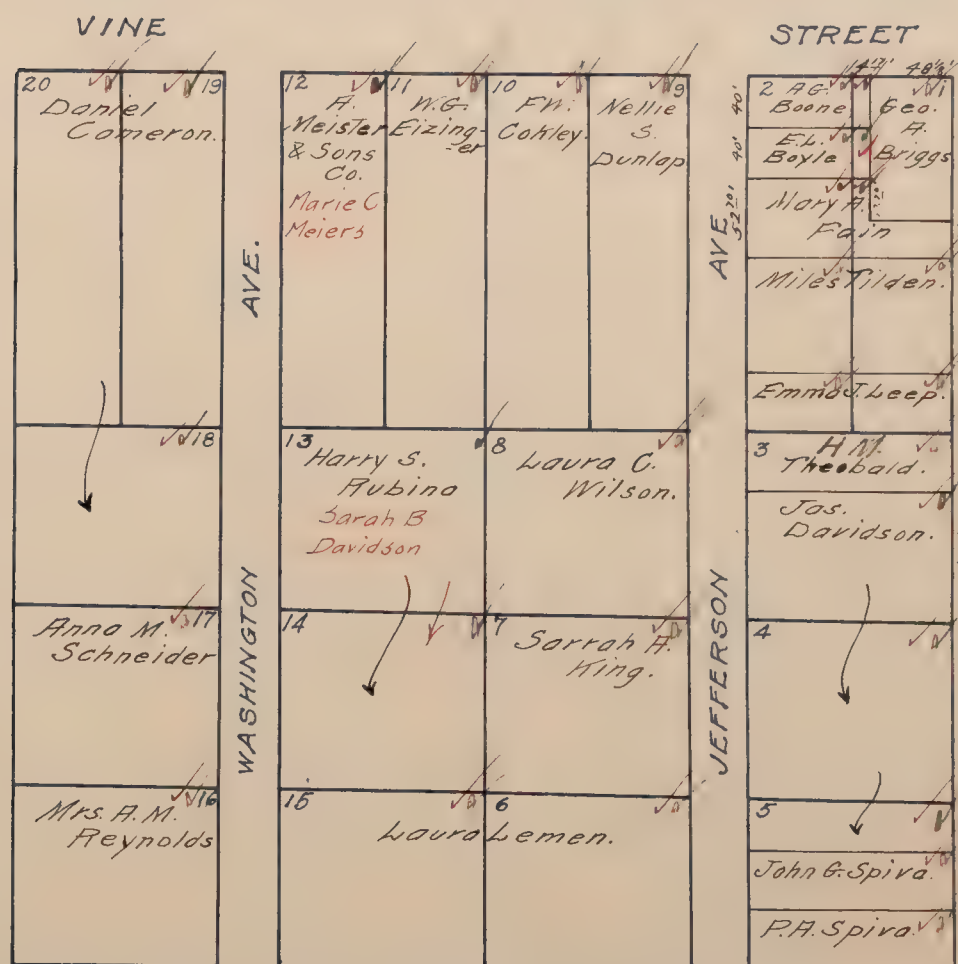 VINE
STREET
20
19
Daniel
Cameron.
18
17
Anna M.
Schneider
16
Mrs. A.M.
Reynolds
WASHINGTON AVE.
12
A.
Meister
& Sons
Co.
Marie C
Meiers
11
W.G.
Eizing-
er
10
F.W.
Cokley.
9
Nellie
S.
Dunlap
13
Harry S.
Rubino
Sarah B
Davidson
8
Laura C.
Wilson.
14
7
Sarrah A.
King.
15
6
Laura Lemen.
JEFFERSON AVE
40'
40'
52 20'
2
A.G.
Boone
1
Geo.
A.
Briggs
E.L.
Boyle
Mary A.
Fain
Miles Tilden.
Emma J. Leep.
3
H.M.
Theobald.
Jas.
Davidson.
4
5
John G. Spira.
P.A. Spira.